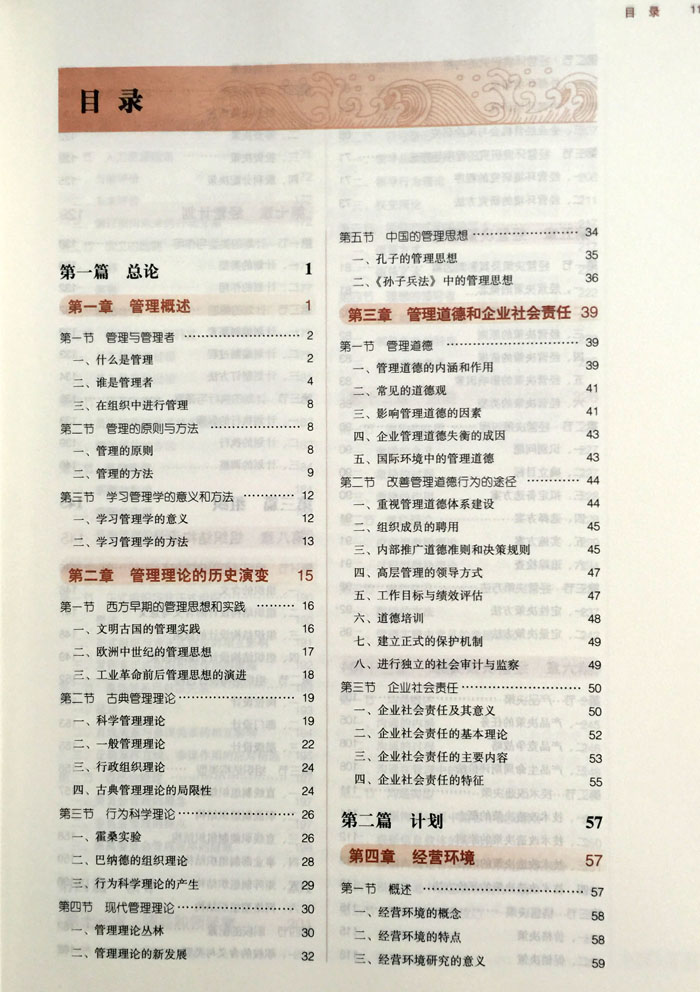 目 录 11
目 录
第一篇 总论 1
第一章 管理概述 1
第一节 管理与管理者 ………………… 2
一、什么是管理 2
二、谁是管理者 4
三、在组织中进行管理 8
第二节 管理的原则与方法 …………… 8
一、管理的原则 8
二、管理的方法 9
第三节 学习管理学的意义和方法 …… 12
一、学习管理学的意义 12
二、学习管理学的方法 13
第二章 管理理论的历史演变 15
第一节 西方早期的管理思想和实践 …… 16
一、文明古国的管理实践 16
二、欧洲中世纪的管理思想 17
三、工业革命前后管理思想的演进 18
第二节 古典管理理论 ………………… 19
一、科学管理理论 19
二、一般管理理论 22
三、行政组织理论 24
四、古典管理理论的局限性 24
第三节 行为科学理论 ………………… 26
一、霍桑实验 26
二、巴纳德的组织理论 28
三、行为科学理论的产生 29
第四节 现代管理理论 ………………… 30
一、管理理论丛林 30
二、管理理论的新发展 32
第五节 中国的管理思想 ……………… 34
一、孔子的管理思想 35
二、《孙子兵法》中的管理思想 36
第三章 管理道德和企业社会责任 39
第一节 管理道德 ……………………… 39
一、管理道德的内涵和作用 39
二、常见的道德观 41
三、影响管理道德的因素 41
四、企业管理道德失衡的成因 43
五、国际环境中的管理道德 43
第二节 改善管理道德行为的途径 …… 44
一、重视管理道德体系建设 44
二、组织成员的聘用 45
三、内部推广道德准则和决策规则 45
四、高层管理的领导方式 47
五、工作目标与绩效评估 47
六、道德培训 48
七、建立正式的保护机制 49
八、进行独立的社会审计与监察 49
第三节 企业社会责任 ………………… 50
一、企业社会责任及其意义 50
二、企业社会责任的基本理论 52
三、企业社会责任的主要内容 53
四、企业社会责任的特征 55
第二篇 计划 57
第四章 经营环境 57
第一节 概述 …………………………… 57
一、经营环境的概念 58
二、经营环境的特点 58
三、经营环境研究的意义 59